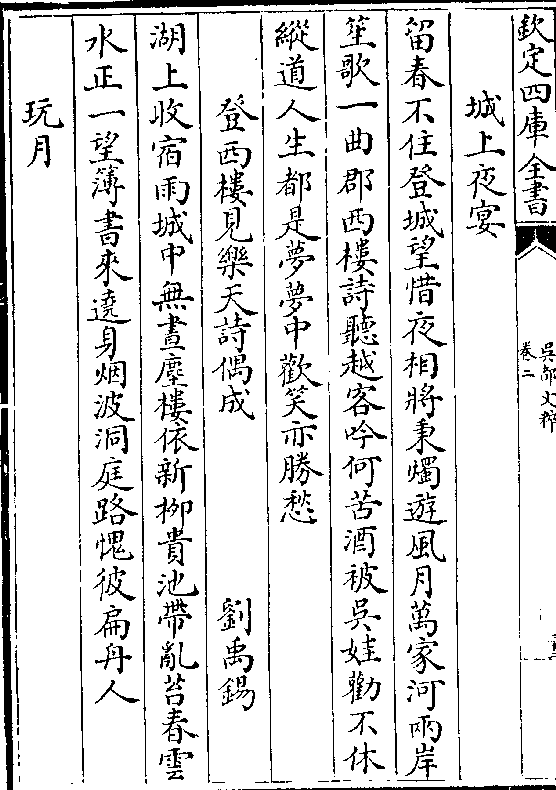 欽定四庫全書
吳都文粹
卷二
城上夜宴
留春不住登城望惜夜相將秉燭遊風月萬家河兩岸
笙歌一曲郡西樓詩聽越客吟何苦酒被吳娃勸不休
縱道人生都是夢夢中歡笑亦勝愁
登西樓見樂天詩偶成 劉禹錫
湖上收宿雨城中無晝塵樓依新柳貴池帶亂苔春雲
水正一望簿書來遶身烟波洞庭路愧彼扁舟人
玩月